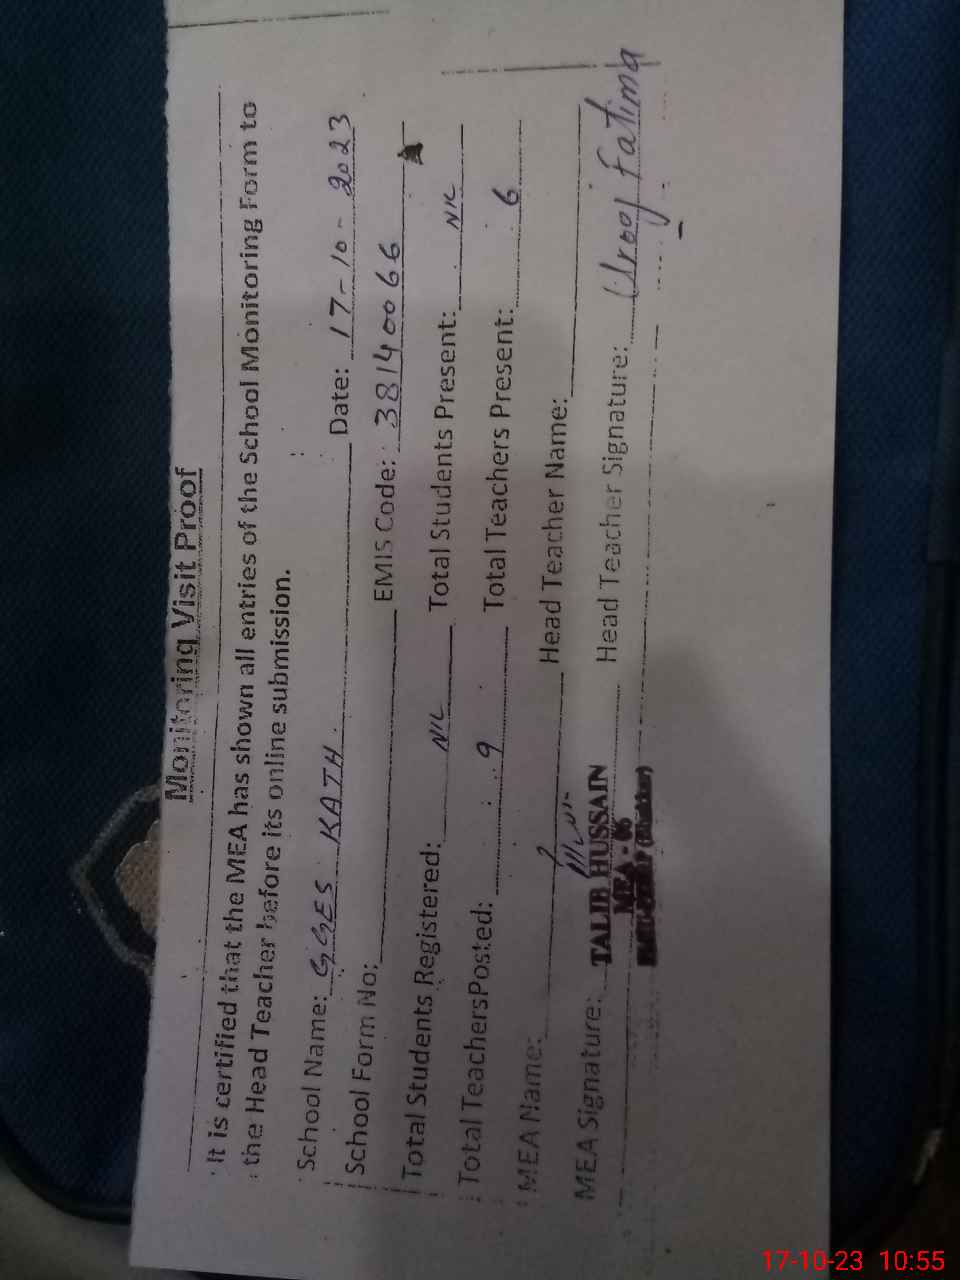 Monitoring Visit Proof
It is certified that the MEA has shown all entries of the School Monitoring Form to
the Head Teacher before its online submission.
School Name: GGES KATH. Date: 17-10-2023
School Form No: EMIS Code: 38140066
Total Students Registered: NIL Total Students Present: NIL
Total TeachersPosted: 9 Total Teachers Present: 6
MEA Name: Head Teacher Name:
MEA Signature: TALIB HUSSAIN Head Teacher Signature: Uroof Fatima
MEA - 06
17-10-23 10:55